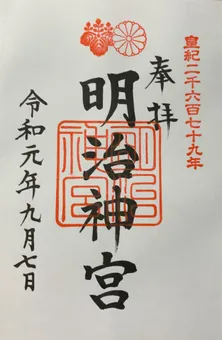 皇紀二千六百七十九年
奉拝
明治神宮
令和元年九月七日